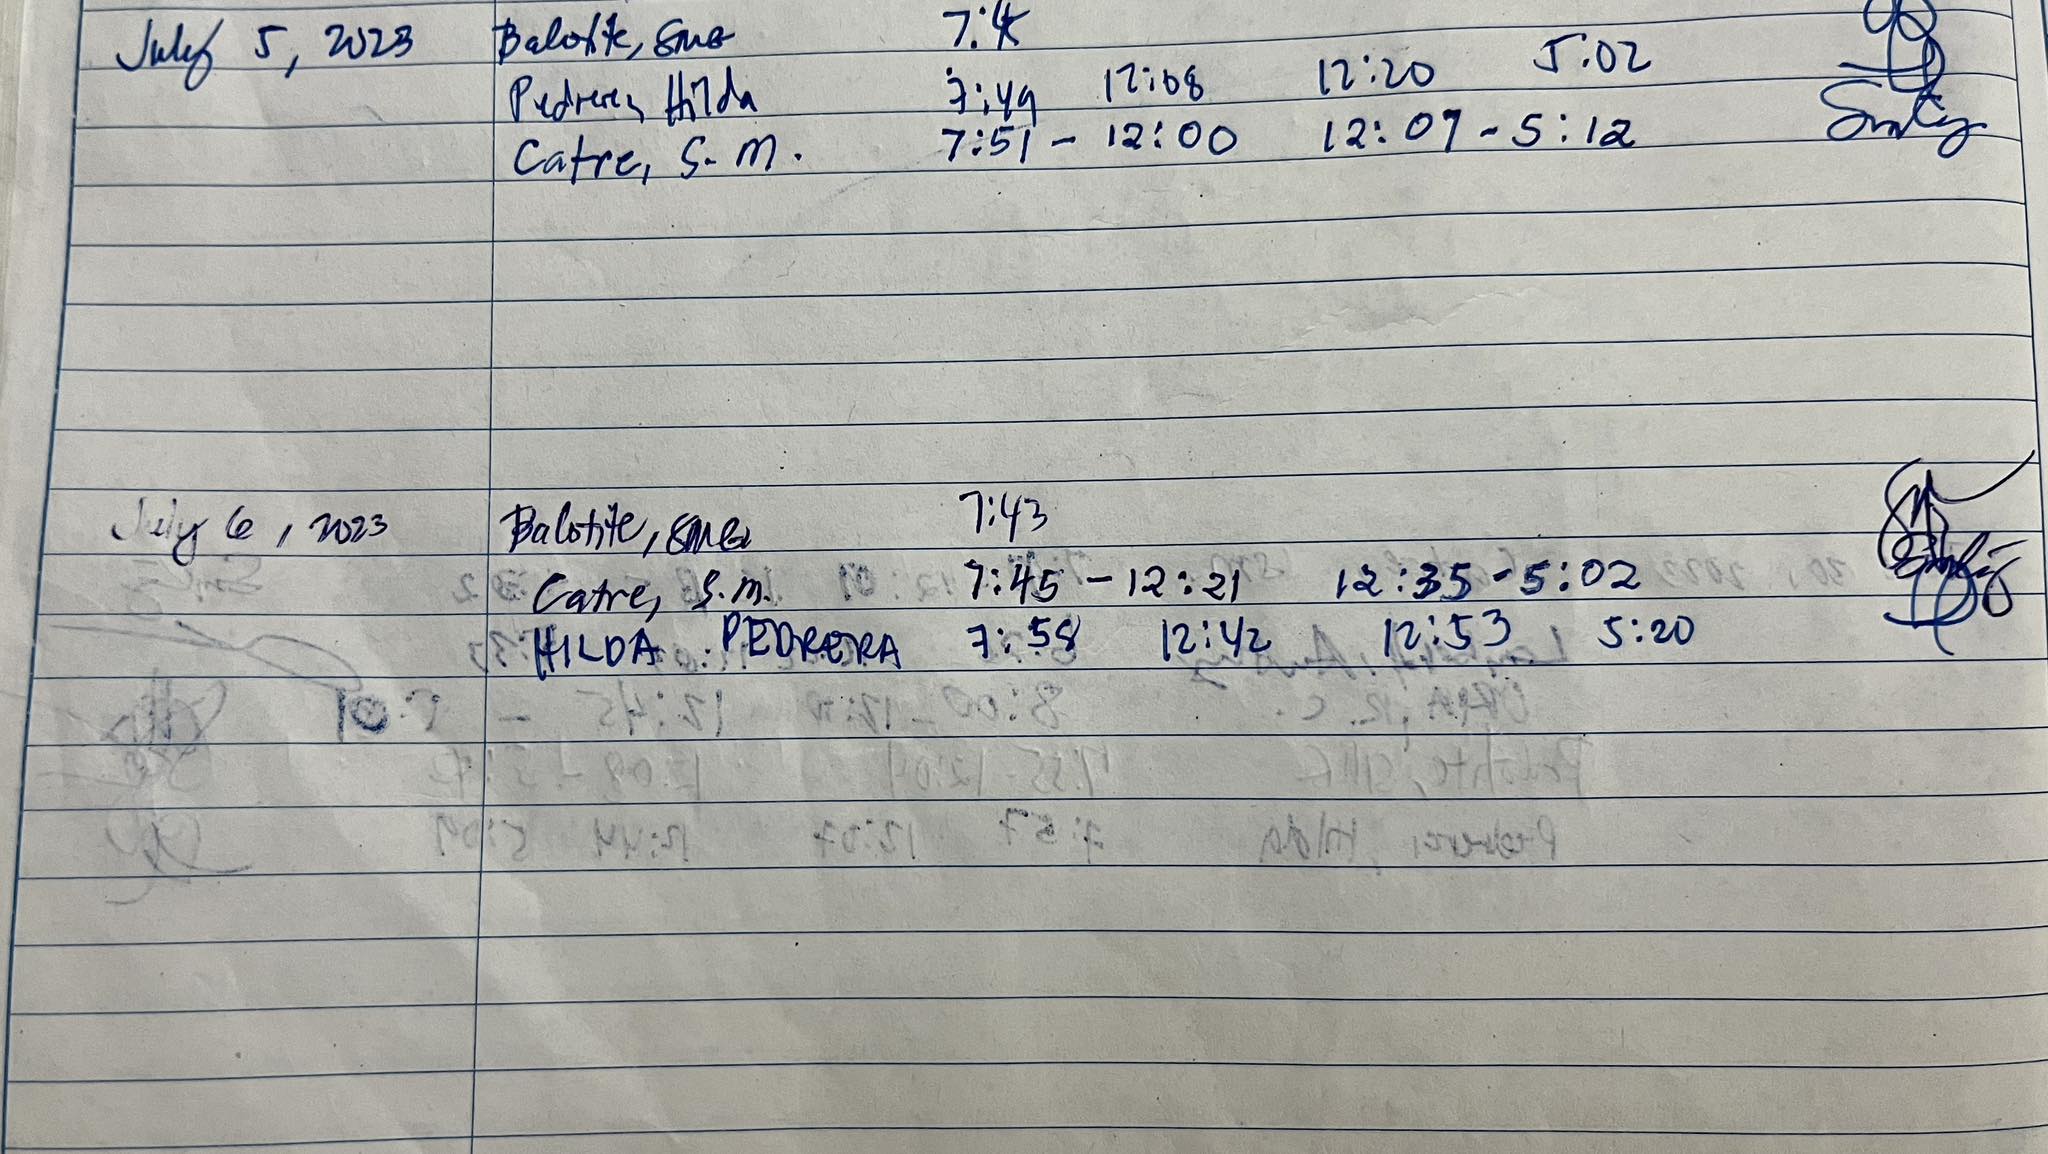 July 5, 2023 Balotite, SMG 7:4
Pedrera, Hilda 7:49 12:08 12:20 5:02
Catre, S.M. 7:51 - 12:00 12:07 - 5:12
July 6, 2023 Balotite, SMG 7:43
Catre, S.M. 7:45 - 12:21 12:35 - 5:02
HILDA PEDRERA 7:58 12:42 12:53 5:20